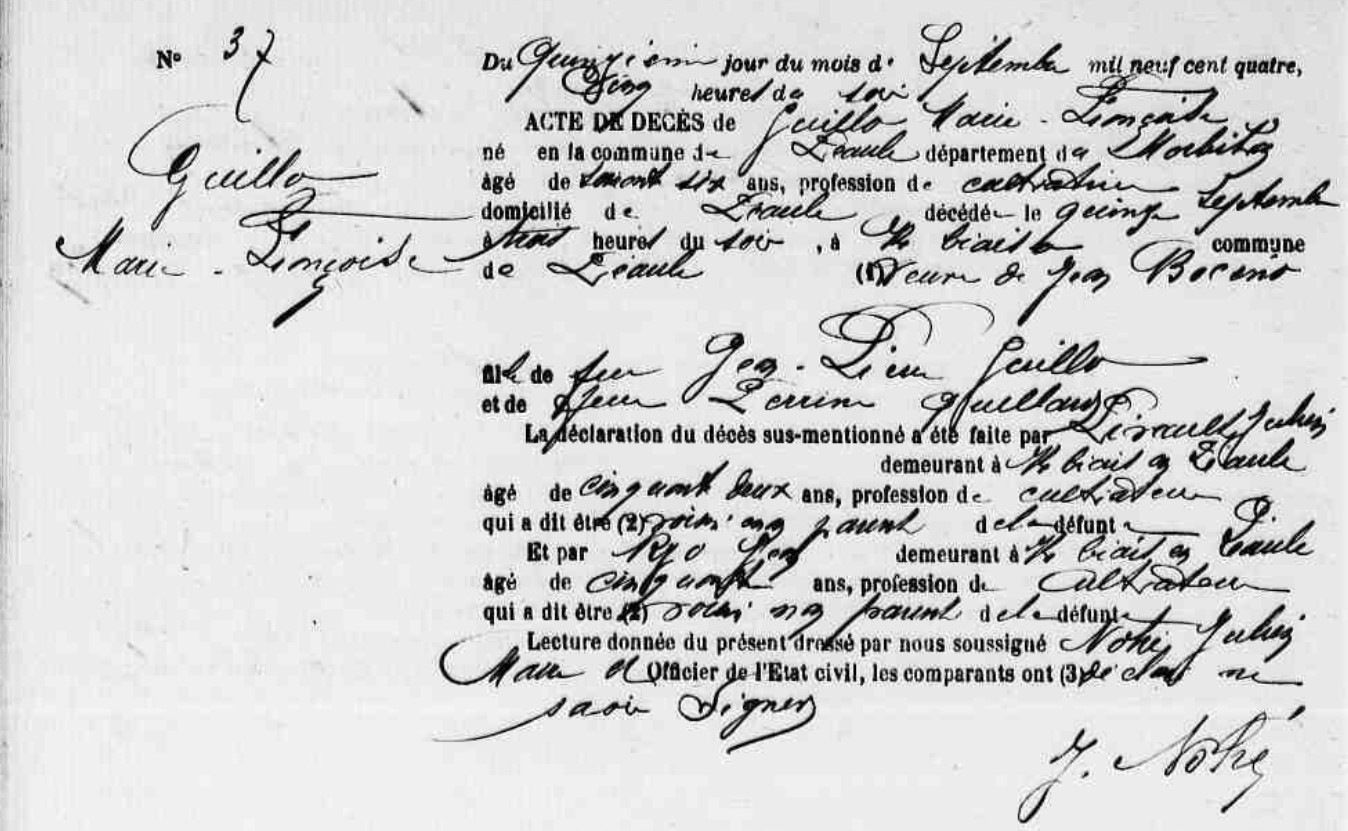 N° 37
Guillo
Marie-Françoise
Du Quinzième jour du mois de Septembre mil neuf cent quatre,
Cinq heures du soir
ACTE DE DECÈS de Guillo Marie-Françoise
né en la commune de Péaule département du Morbihan
âgé de soixante six ans, profession de cultivatrice
domicilié de Péaule décédée le quinze Septembre
à trois heures du soir, à commune
de Péaule (1) Veuve de Jean Boceno
fille de feu Jean-Pierre Guillo
et de feue Perrine
La déclaration du décès sus-mentionné a été faite par Julien
demeurant à en Péaule
âgé de cinquante deux ans, profession de cultivateur
qui a dit être (2) voisin non parent de la défunte
Et par Ryo Jean demeurant à en Péaule
âgé de cinquante ans, profession de cultivateur
qui a dit être (2) voisin non parent de la défunte
Lecture donnée du présent dressé par nous soussigné Julien
Maire et Officier de l'Etat civil, les comparants ont (3) déclaré ne
savoir signer
J.